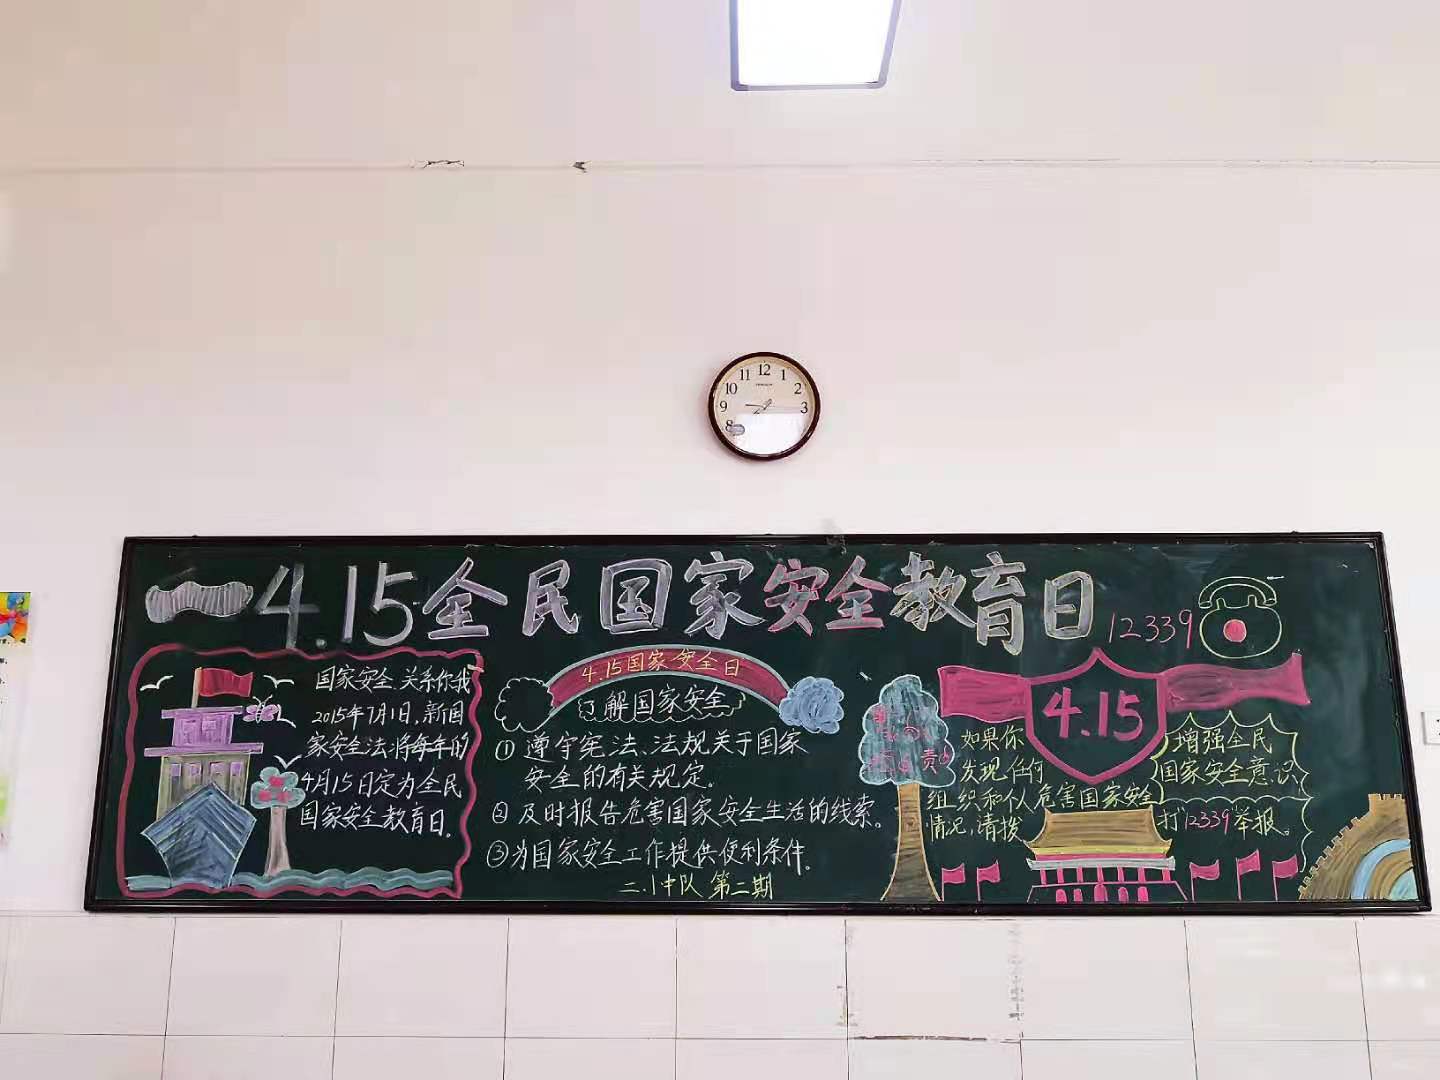 12
1
2
3
8
9
10
11
4.15全民国家安全教育日
12339
国家安全,关系你我
2015年7月1日,新国
家安全法将每年的
4月15日定为全民
国家安全教育日。
4.15国家安全日
了解国家安全
① 遵守宪法、法规关于国家
安全的有关规定。
② 及时报告危害国家安全生活的线索。
③为国家安全工作提供便利条件。
二.1中队 第二期
4.15
如果你
发现任何
组织和个人危害国家安全
情况,请拨
增强全民
国家安全意识,
打12339举报。